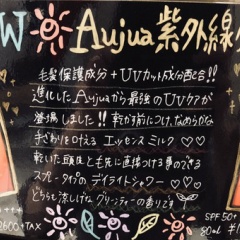 W Aujua 紫外線
毛髪保護成分 + UVカット成分配合!!
進化したAujuaから最強のUVケアが
登場しました!! 乾かす前につけ、なめらかな
手ざわりを叶える エッセンス ミルク ♡♡
乾いた頭皮と毛先に直接つける事のできる
スプレータイプのデイライトシャワー ♡♡
どちらも涼しげな グリーンティーの香りです
2600+TAX
SPF 50+
80ml